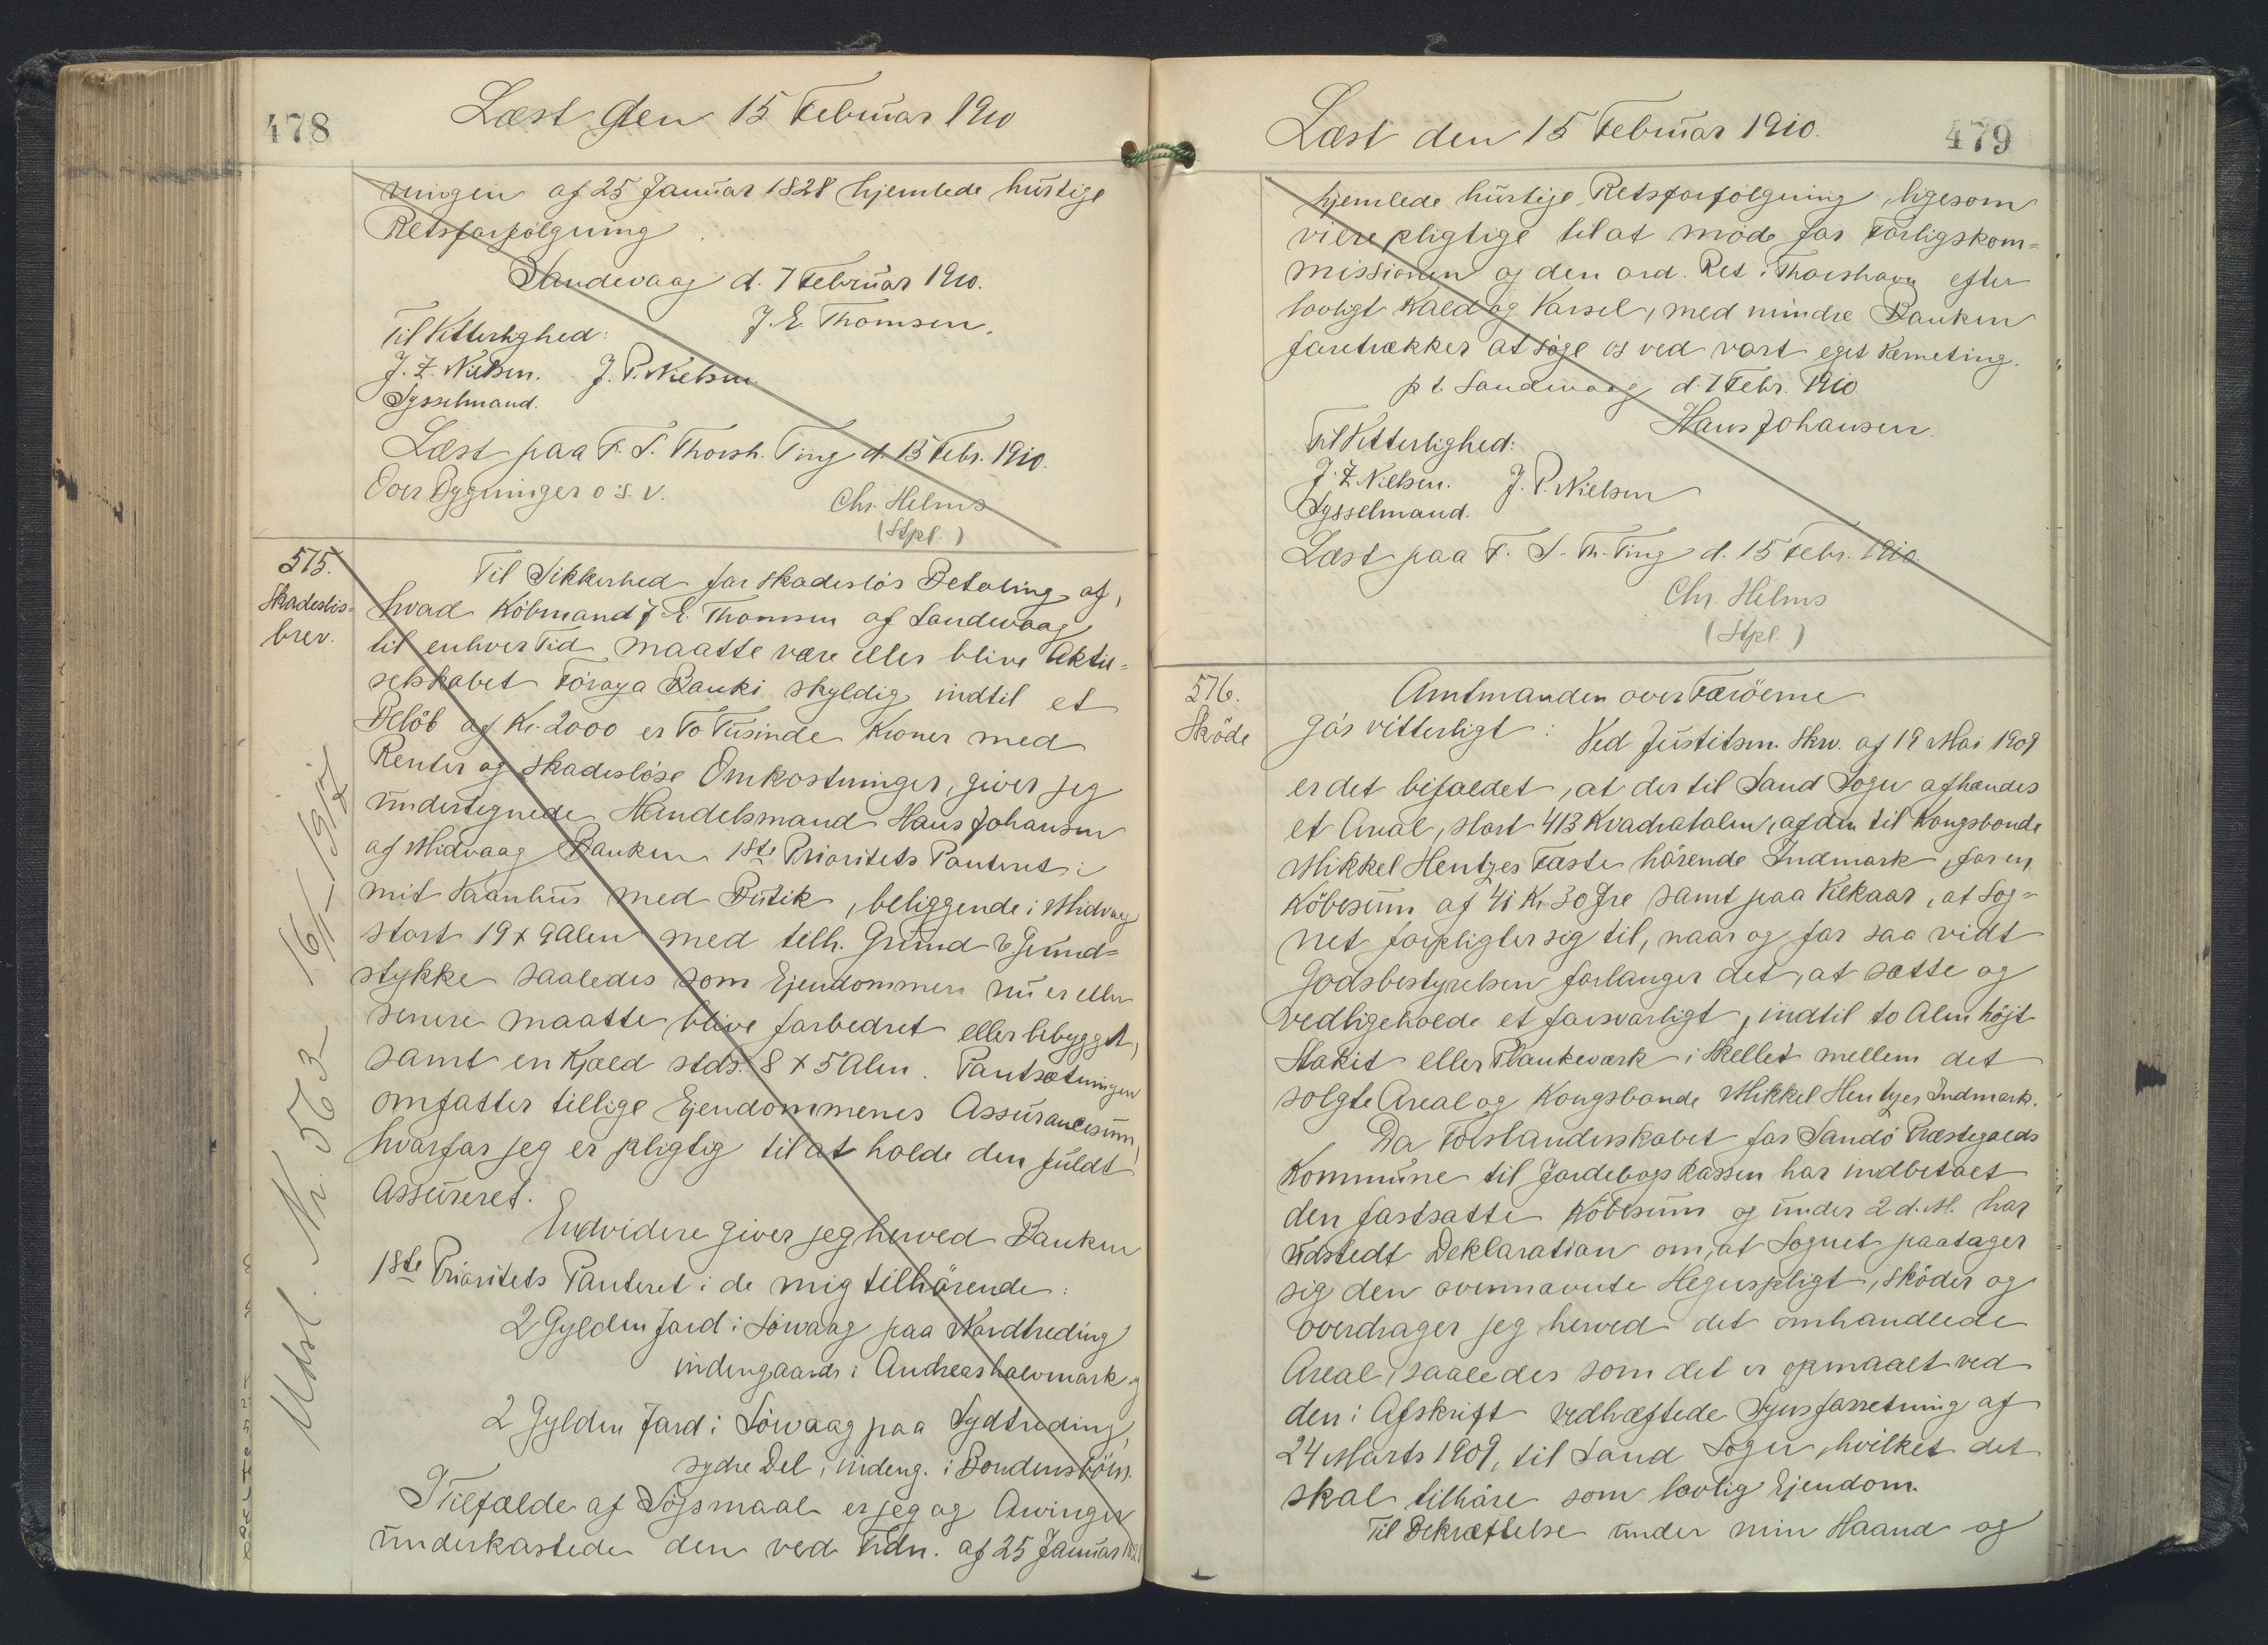 478
Læst den 15 Februar 1910
ningen af 25 Januar 1828 hjemlede hurtige
Retsforfölgning.
Sandevaag d. 7 Februar 1910.
J. E. Thomsen.
Til Vitterlighed:
J. F. Nielsen. J. P. Nielsen.
Sysselmand.
Læst paa F. S. Thorsh. Ting d. 15 Febr. 1910.
Over Bygninger o. s. v.
Chr. Helms
(Stpl.)
575.
Skadeslös-
brev.
Til Sikkerhed for skadeslös Betaling af,
hvad Köbmand J. E. Thomsen af Sandevaag
til enhver Tid maatte være eller blive Aktie-
selskabet Föroya Banki skyldig indtil et
Belöb af Kr. 2000 er To Tusinde Kroner med
Renter og skadeslöse Omkostninger, giver jeg
undertegnede Handelsmand Hans Johansen
af Midvaag Banken 1ste Prioritets Panteret i
mit Vaanhus med Butik, beliggende i Midvaag
stort 19 x 9 Alen med tilh. Grund & Grund-
stykke saaledes som Ejendommen nu er eller
senere maatte blive forbedret eller bebygget,
samt en Kjæld stds. 8 x 5 Alen. Pantsætningen
omfatter tillige Ejendommenes Assurancesum,
hvorfor jeg er pligtig til at holde den fuldt
Assureret.
Endvidere giver jeg herved Banken
1ste Prioritets Panteret i de mig tilhörende:
2 Gylden Jord i Sörvaag paa Nordtreding
indengaards i Andreashalvmark og
2 Gylden Jord i Sörvaag paa Sydtreding,
sydre Del, indeng. i Bondensböin.
I Tilfælde af Sögsmaal er jeg og Arvinger
underkastede den ved Frdn. af 25 Januar 1828
Udsl. Nr 563 16/1-1912
479
Læst den 15 Februar 1910.
hjemlede hurtige Retsforfölgning, ligesom
vi ere pligtige til at möde for Forligskom-
missionen og den ord. Ret i Thorshavn efter
lovligt Kald og Varsel, med mindre Banken
foretrækker at söge os ved vort eget Værneting.
p t. Sandevaag d. 7 Febr. 1910
Hans Johansen.
Til Vitterlighed:
J. F. Nielsen. J. P. Nielsen
Sysselmand.
Læst paa F. S. Th. Ting d. 15 Febr. 1910
Chr. Helms
(Stpl.)
576.
Sköde
Amtmanden over Færöerne
gör vitterligt: Ved Justitsm. Skr. af 19 Mai 1909
er det bifaldet, at der til Sand Sogn afhændes
et Areal, stort 413 Kvadratalen, af den til Kongsbonde
Mikkel Hentzes Fæste hörende Indmark, for en
Köbesum af 41 Kr. 30 Øre samt paa Vilkaar, at Sog-
net forpligter sig til, naar og for saa vidt
Godsbestyrelsen forlanger det, at sætte og
vedligeholde et forsvarligt, indtil to Alen höjt
Stakit eller Plankeværk i Skellet mellem det
solgte Areal og Kongsbonde Mikkel Hentzes Indmark.
Da Forstanderskabet for Sandö Præstegælds
Kommune til Jordebogskassen har indbetalt
den fastsatte Köbesum og under 2 d. M. har
udstedt Deklaration om, at Sognet paatager
sig den ovennævnte Hegnspligt, sköder og
overdrager jeg herved det omhandlede
Areal, saaledes som det er opmaalt ved
den i Afskrift vedhæftede Synsforretning af
24 Marts 1909, til Sand Sogn, hvilket det
skal tilhöre som lovlig Ejendom.
Til Bekræftelse under min Haand og